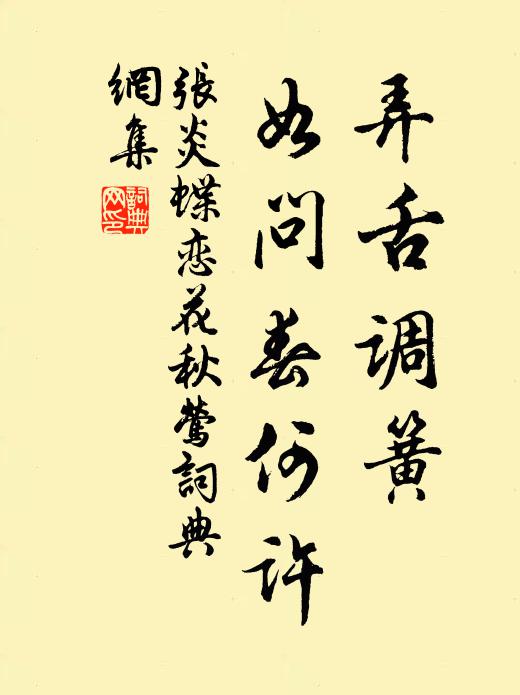 弄舌调簧
如问春何许
張炎蝶恋花秋鶯詞典
網集
詞典
网印